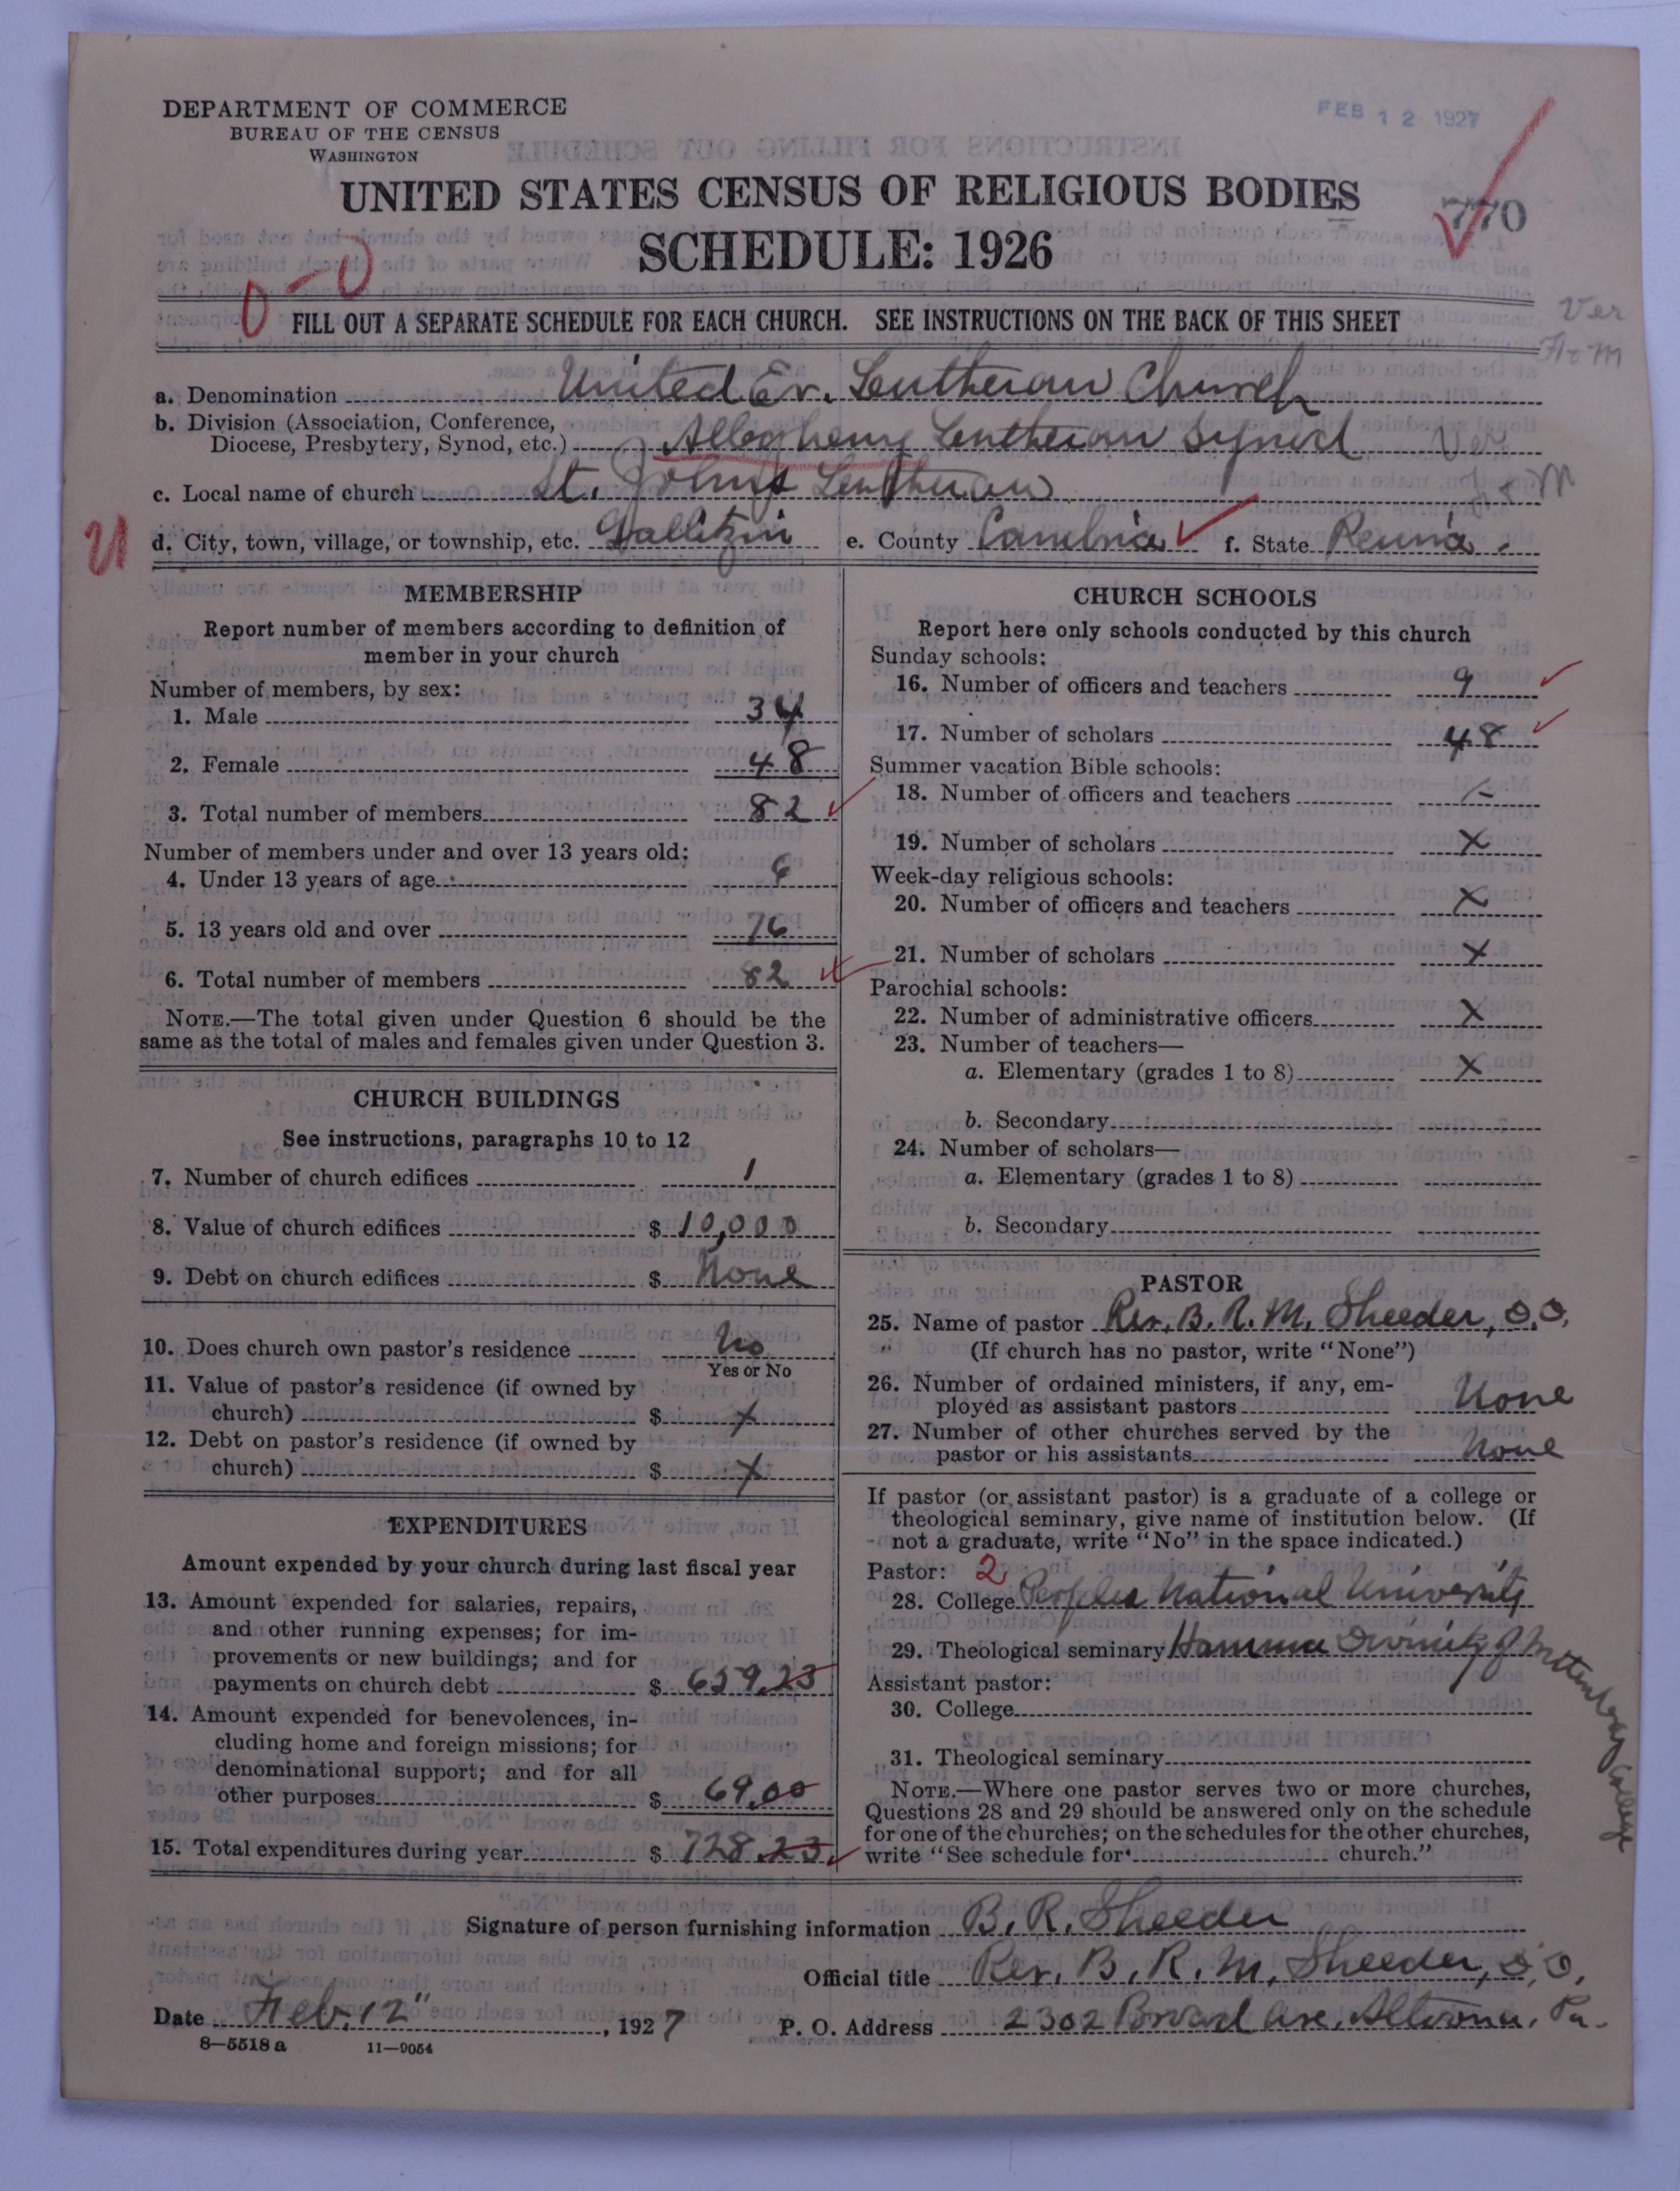 DEPARTMENT OF COMMERCE
BUREAU OF THE CENSUS
WASHINGTON
FEB 12 1927
UNITED STATES CENSUS OF RELIGIOUS BODIES
770
SCHEDULE: 1926
0-0
FILL OUT A SEPARATE SCHEDULE FOR EACH CHURCH. SEE INSTRUCTIONS ON THE BACK OF THIS SHEET
Ver
a. Denomination United Ev. Lutheran Church
b. Division (Association, Conference,
Diocese, Presbytery, Synod, etc.) Allegheny Lutheran Synod Ver
c. Local name of church St. Johns Lutheran
d. City, town, village, or township, etc. Gallitzin e. County Cambria f. State Penna.
MEMBERSHIP
Report number of members according to definition of
member in your church
Number of members, by sex:
1. Male 34
2. Female 48
3. Total number of members 82
Number of members under and over 13 years old:
4. Under 13 years of age 6
5. 13 years old and over 76
6. Total number of members 82
NOTE.—The total given under Question 6 should be the
same as the total of males and females given under Question 3.
CHURCH BUILDINGS
See instructions, paragraphs 10 to 12
7. Number of church edifices 1
8. Value of church edifices $ 10,000
9. Debt on church edifices $ None
10. Does church own pastor's residence No
Yes or No
11. Value of pastor's residence (if owned by
church) $ X
12. Debt on pastor's residence (if owned by
church) $ X
EXPENDITURES
Amount expended by your church during last fiscal year
13. Amount expended for salaries, repairs,
and other running expenses; for im-
provements or new buildings; and for
payments on church debt $ 659.23
14. Amount expended for benevolences, in-
cluding home and foreign missions; for
denominational support; and for all
other purposes $ 69.00
15. Total expenditures during year $ 728.23
CHURCH SCHOOLS
Report here only schools conducted by this church
Sunday schools:
16. Number of officers and teachers 9
17. Number of scholars 48
Summer vacation Bible schools:
18. Number of officers and teachers
19. Number of scholars X
Week-day religious schools:
20. Number of officers and teachers X
21. Number of scholars X
Parochial schools:
22. Number of administrative officers X
23. Number of teachers—
a. Elementary (grades 1 to 8) X
b. Secondary
24. Number of scholars—
a. Elementary (grades 1 to 8)
b. Secondary
PASTOR
25. Name of pastor Rev. B. R. M. Sheeder, D.D.
(If church has no pastor, write "None")
26. Number of ordained ministers, if any, em-
ployed as assistant pastors None
27. Number of other churches served by the
pastor or his assistants None
If pastor (or assistant pastor) is a graduate of a college or
theological seminary, give name of institution below. (If
not a graduate, write "No" in the space indicated.)
Pastor: 2
28. College Peoples National University
29. Theological seminary Hamma Divinity of Wittenberg College
Assistant pastor:
30. College
31. Theological seminary
NOTE.—Where one pastor serves two or more churches,
Questions 28 and 29 should be answered only on the schedule
for one of the churches; on the schedules for the other churches,
write "See schedule for church."
Signature of person furnishing information B. R. Sheeder
Official title Rev. B. R. M. Sheeder, D.D.
Date Feb. 12", 1927 P. O. Address 2302 Broad Ave. Altoona, Pa.
8—5518 a 11—9054